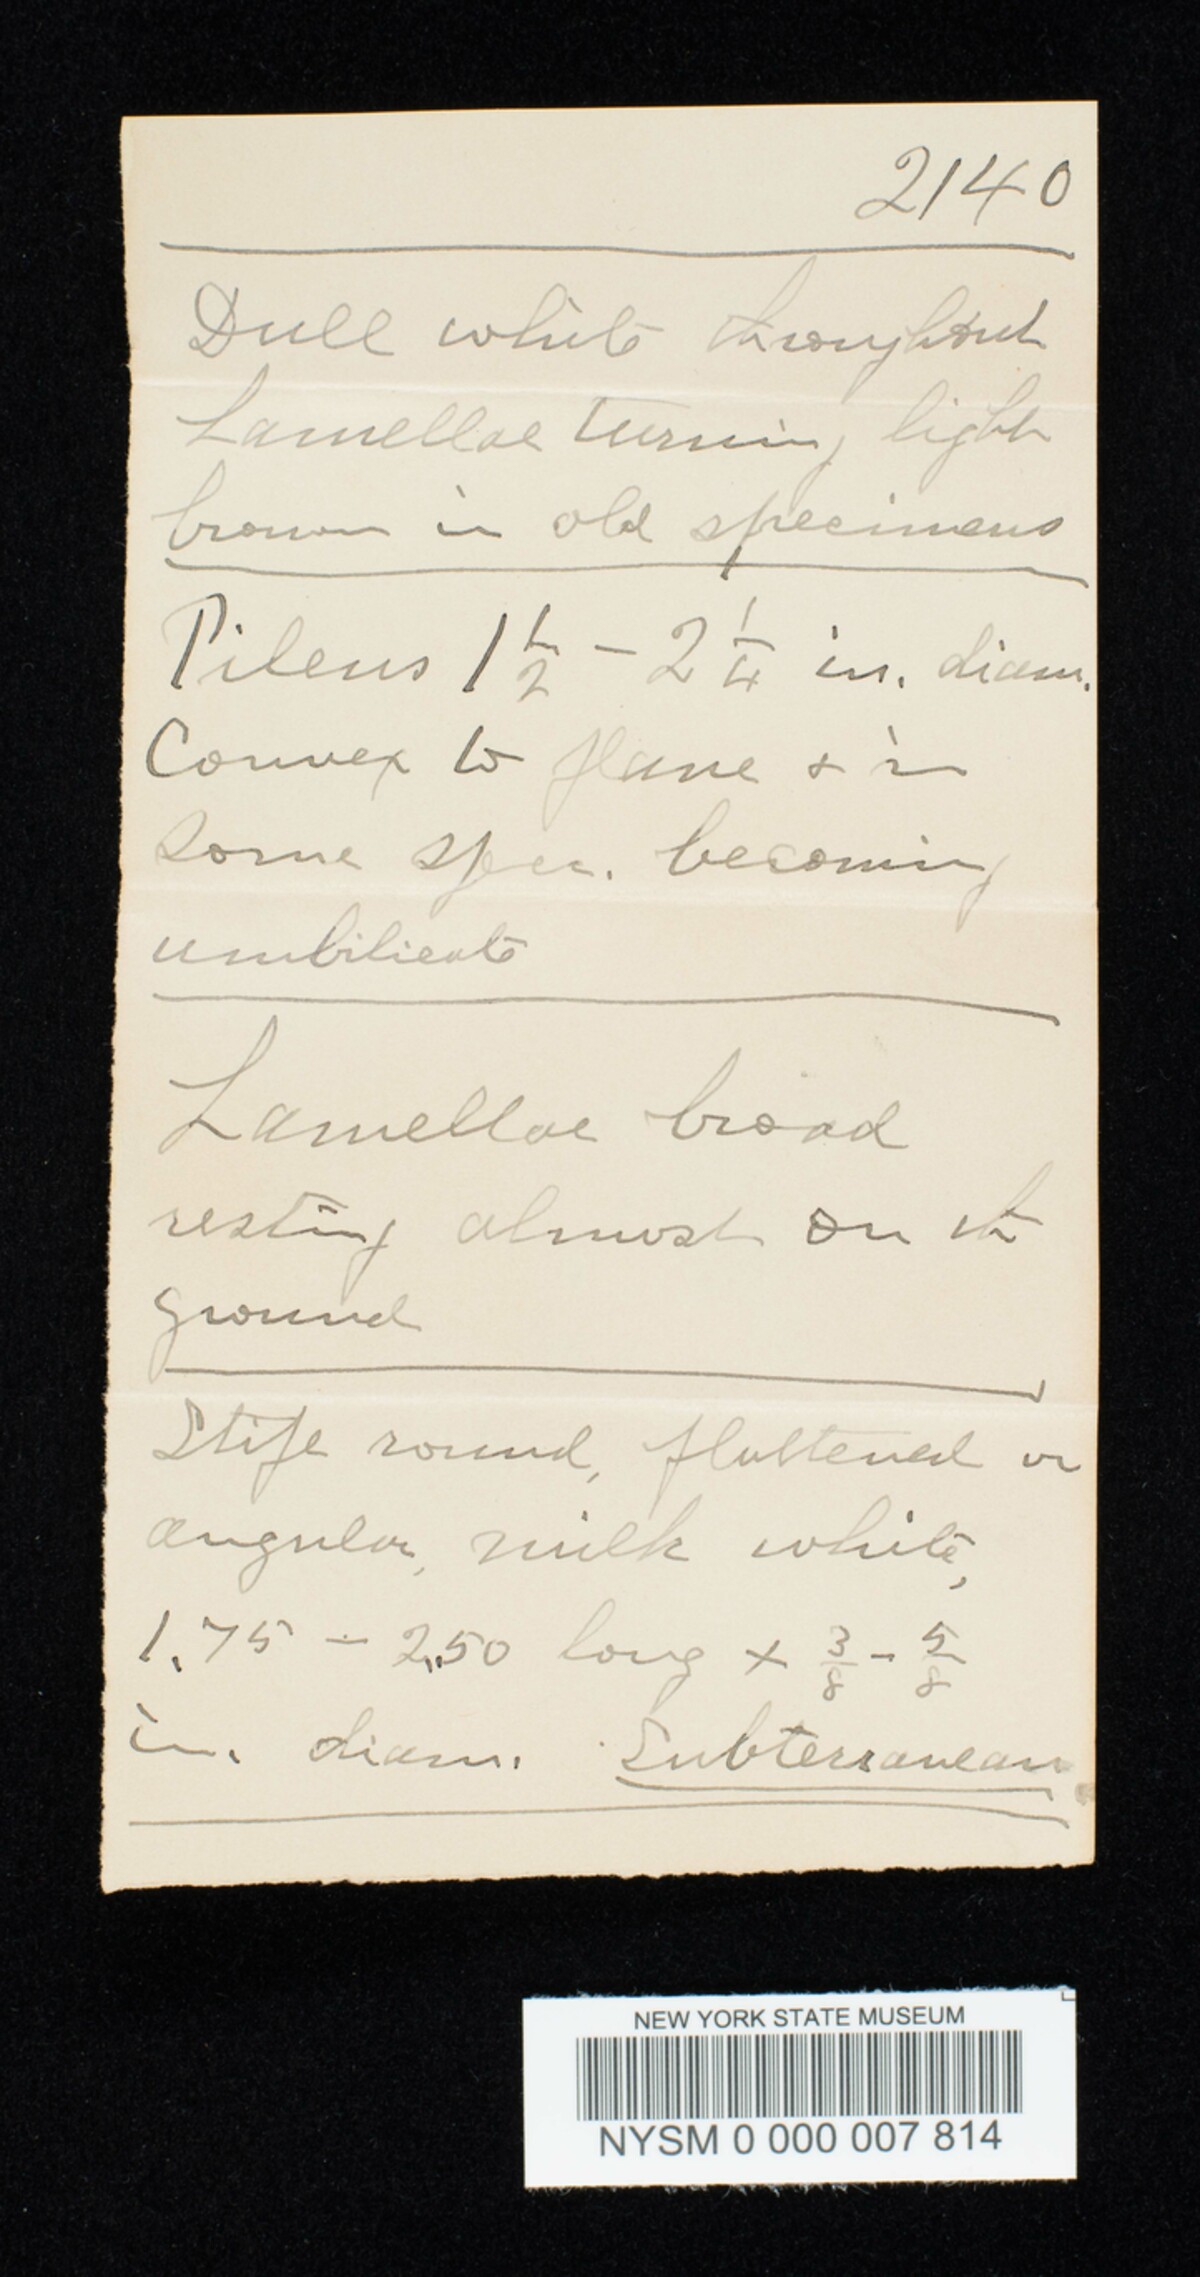 2140
Dull white throughout
Lamellae turning light
brown in old specimens
Pileus 1 1/2 - 2 1/4 in. diam.
Convex to plane & in
some spec. becoming
umbilicate
Lamellae broad
resting almost on the
ground
Stipe round, flattened or
angular, milk white,
1.75 - 2.50 long x 3/8 - 5/8
in. diam. Subterranean
NEW YORK STATE MUSEUM
NYSM 0 000 007 814